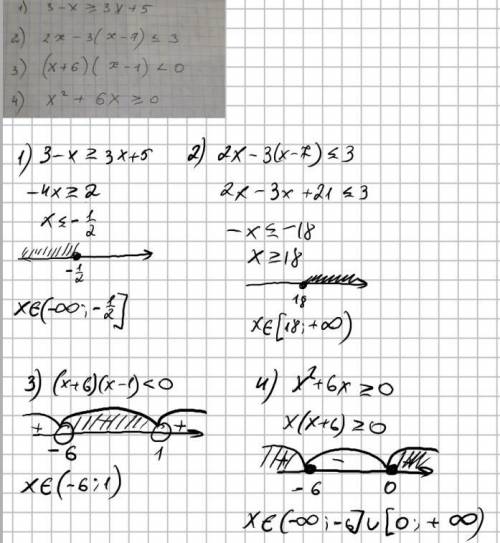 1) 3-x ≥ 3x+5
2) 2x - 3(x-7) ≤ 3
3) (x+6)(x-1) < 0
4) x² + 6x ≥ 0
1) 3-x ≥ 3x+5
-4x ≥ 2
x ≤ -1/2
-1/2
x∈(-∞; -1/2]
2) 2x - 3(x-7) ≤ 3
2x - 3x + 21 ≤ 3
-x ≤ -18
x ≥ 18
18
x∈[18; +∞)
3) (x+6)(x-1) < 0
+ +
-6 1
x∈(-6; 1)
4) x²+6x ≥ 0
x(x+6) ≥ 0
+ - +
-6 0
x∈(-∞; -6]∪[0; +∞)